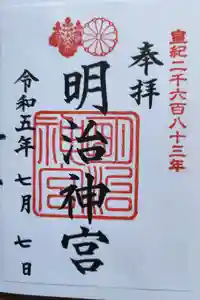 皇紀二千六百八十三年
奉拝
明治神宮
令和五年七月七日